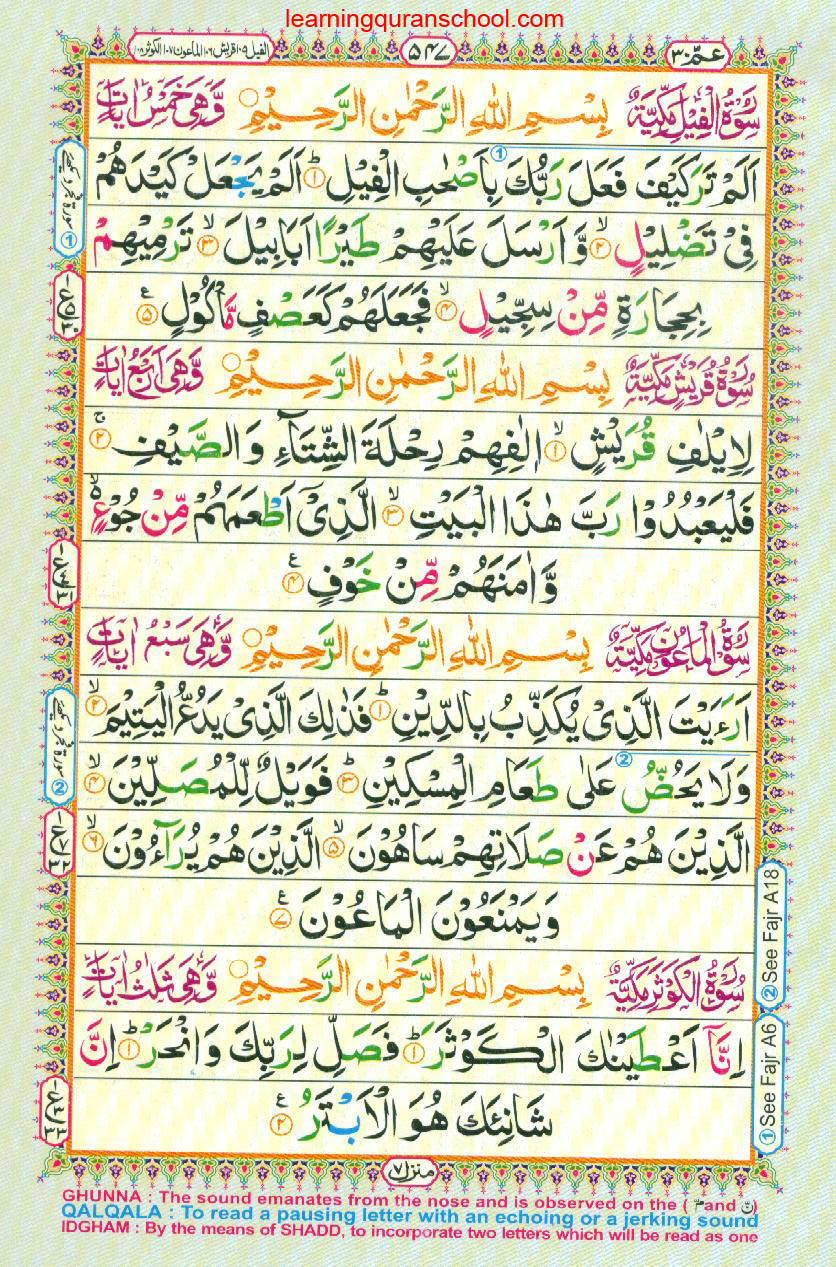 learningquranschool.com
عمّ ٣٠
٥٤٧
الفيل ١٠٥ قريش ١٠٦ الماعون ١٠٧ الكوثر ١٠٨
سُوْرَةُ الْفِيْلِ مَكِّيَّةٌ بِسْمِ اللهِ الرَّحْمٰنِ الرَّحِيْمِ وَّهِيَ خَمْسُ اٰيَاتٍ
اَلَمْ تَرَ كَيْفَ فَعَلَ رَبُّكَ بِاَصْحٰبِ الْفِيْلِ ۱ اَلَمْ يَجْعَلْ كَيْدَهُمْ
فِيْ تَضْلِيْلٍ ۲ وَّاَرْسَلَ عَلَيْهِمْ طَيْرًا اَبَابِيْلَ ۳ تَرْمِيْهِمْ
بِحِجَارَةٍ مِّنْ سِجِّيْلٍ ۴ فَجَعَلَهُمْ كَعَصْفٍ مَّاْكُوْلٍ ۵
سُوْرَةُ قُرَيْشٍ مَكِّيَّةٌ بِسْمِ اللهِ الرَّحْمٰنِ الرَّحِيْمِ وَّهِيَ اَرْبَعُ اٰيَاتٍ
لِاِيْلٰفِ قُرَيْشٍ ۱ اٖلٰفِهِمْ رِحْلَةَ الشِّتَآءِ وَالصَّيْفِ ۲
فَلْيَعْبُدُوْا رَبَّ هٰذَا الْبَيْتِ ۳ الَّذِيْٓ اَطْعَمَهُمْ مِّنْ جُوْعٍ
وَّاٰمَنَهُمْ مِّنْ خَوْفٍ ۴
سُوْرَةُ الْمَاعُوْنَ مَكِّيَّةٌ بِسْمِ اللهِ الرَّحْمٰنِ الرَّحِيْمِ وَّهِيَ سَبْعُ اٰيَاتٍ
اَرَءَيْتَ الَّذِيْ يُكَذِّبُ بِالدِّيْنِ ۱ فَذٰلِكَ الَّذِيْ يَدُعُّ الْيَتِيْمَ ۲
وَلَا يَحُضُّ عَلٰى طَعَامِ الْمِسْكِيْنِ ۳ فَوَيْلٌ لِّلْمُصَلِّيْنَ ۴
الَّذِيْنَ هُمْ عَنْ صَلَاتِهِمْ سَاهُوْنَ ۵ الَّذِيْنَ هُمْ يُرَآءُوْنَ ۶
وَيَمْنَعُوْنَ الْمَاعُوْنَ ۷
سُوْرَةُ الْكَوْثَرِ مَكِّيَّةٌ بِسْمِ اللهِ الرَّحْمٰنِ الرَّحِيْمِ وَّهِيَ ثَلٰثُ اٰيَاتٍ
اِنَّآ اَعْطَيْنٰكَ الْكَوْثَرَ ۱ فَصَلِّ لِرَبِّكَ وَانْحَرْ ۱ اِنَّ
شَانِئَكَ هُوَ الْاَبْتَرُ ۲
② See Fajr A18
① See Fajr A6
منزل ٧
GHUNNA : The sound emanates from the nose and is observed on the ( مّ and نّ )
QALQALA : To read a pausing letter with an echoing or a jerking sound
IDGHAM : By the means of SHADD, to incorporate two letters which will be read as one